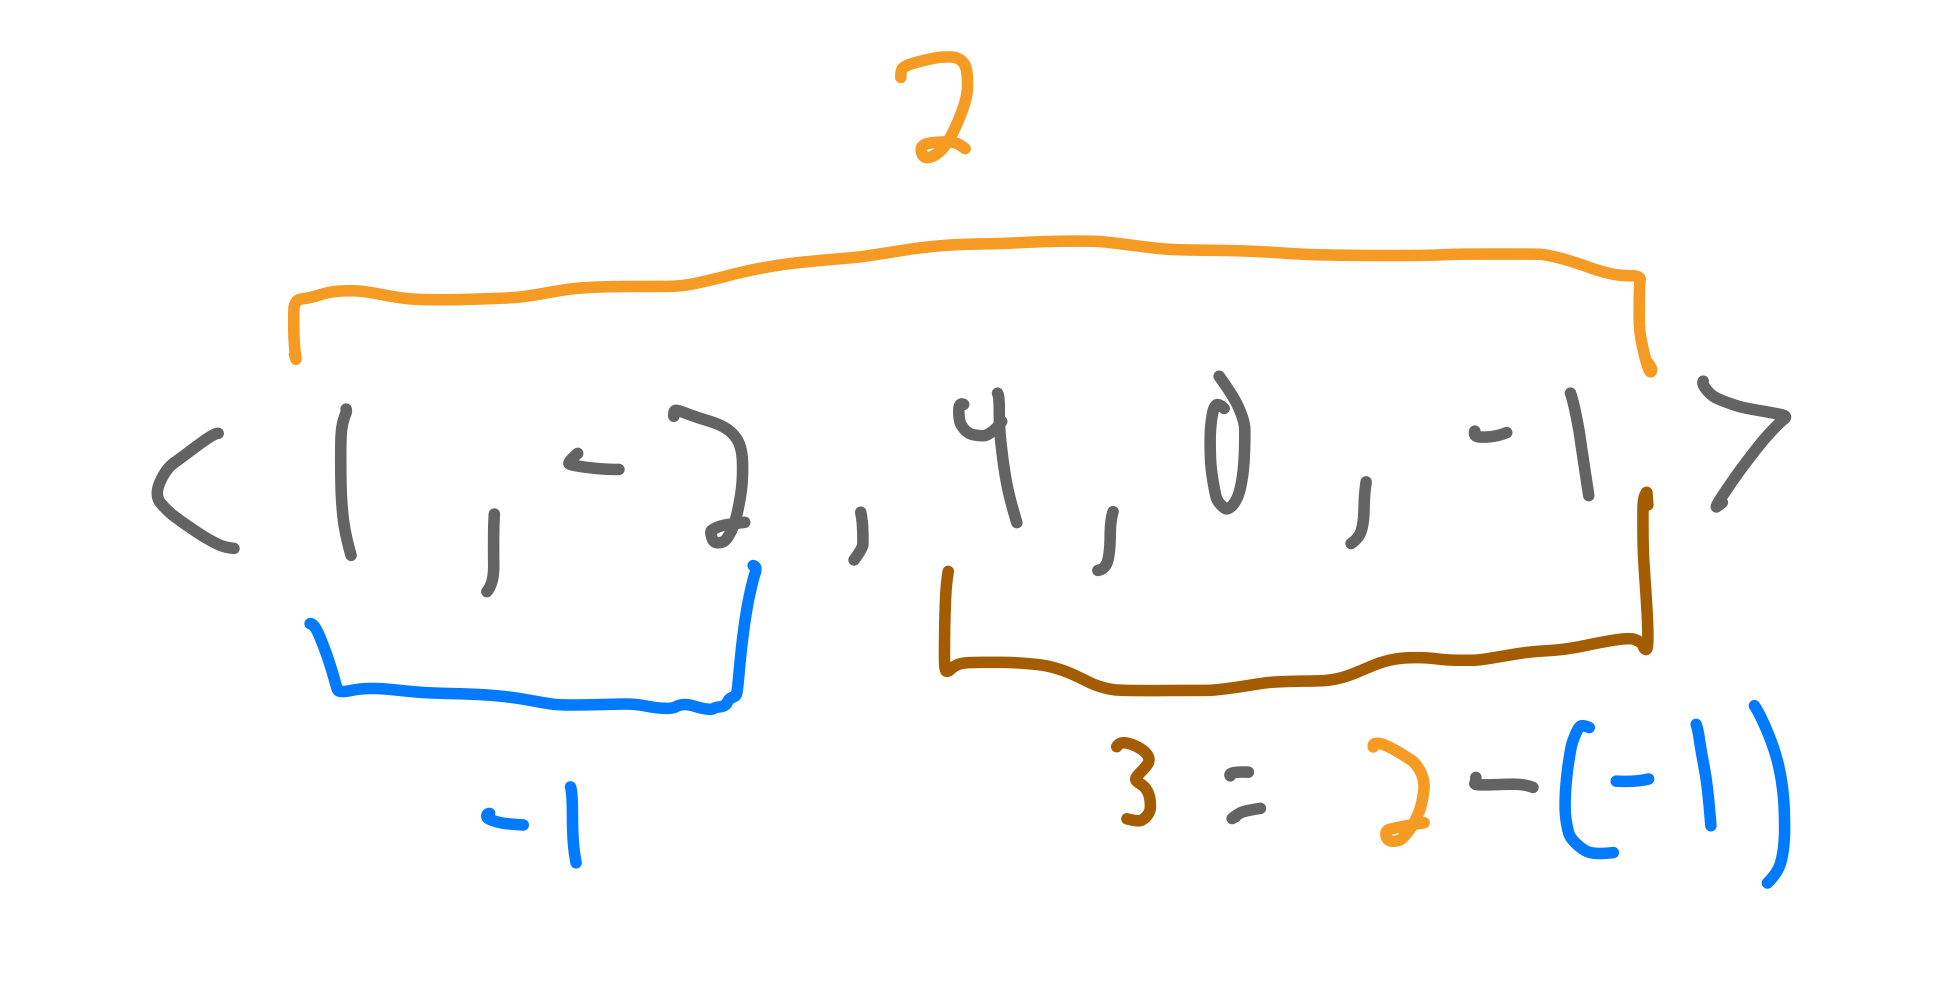 2
<1, -2, 4, 0, -1>
-1
3 = 2 - (-1)